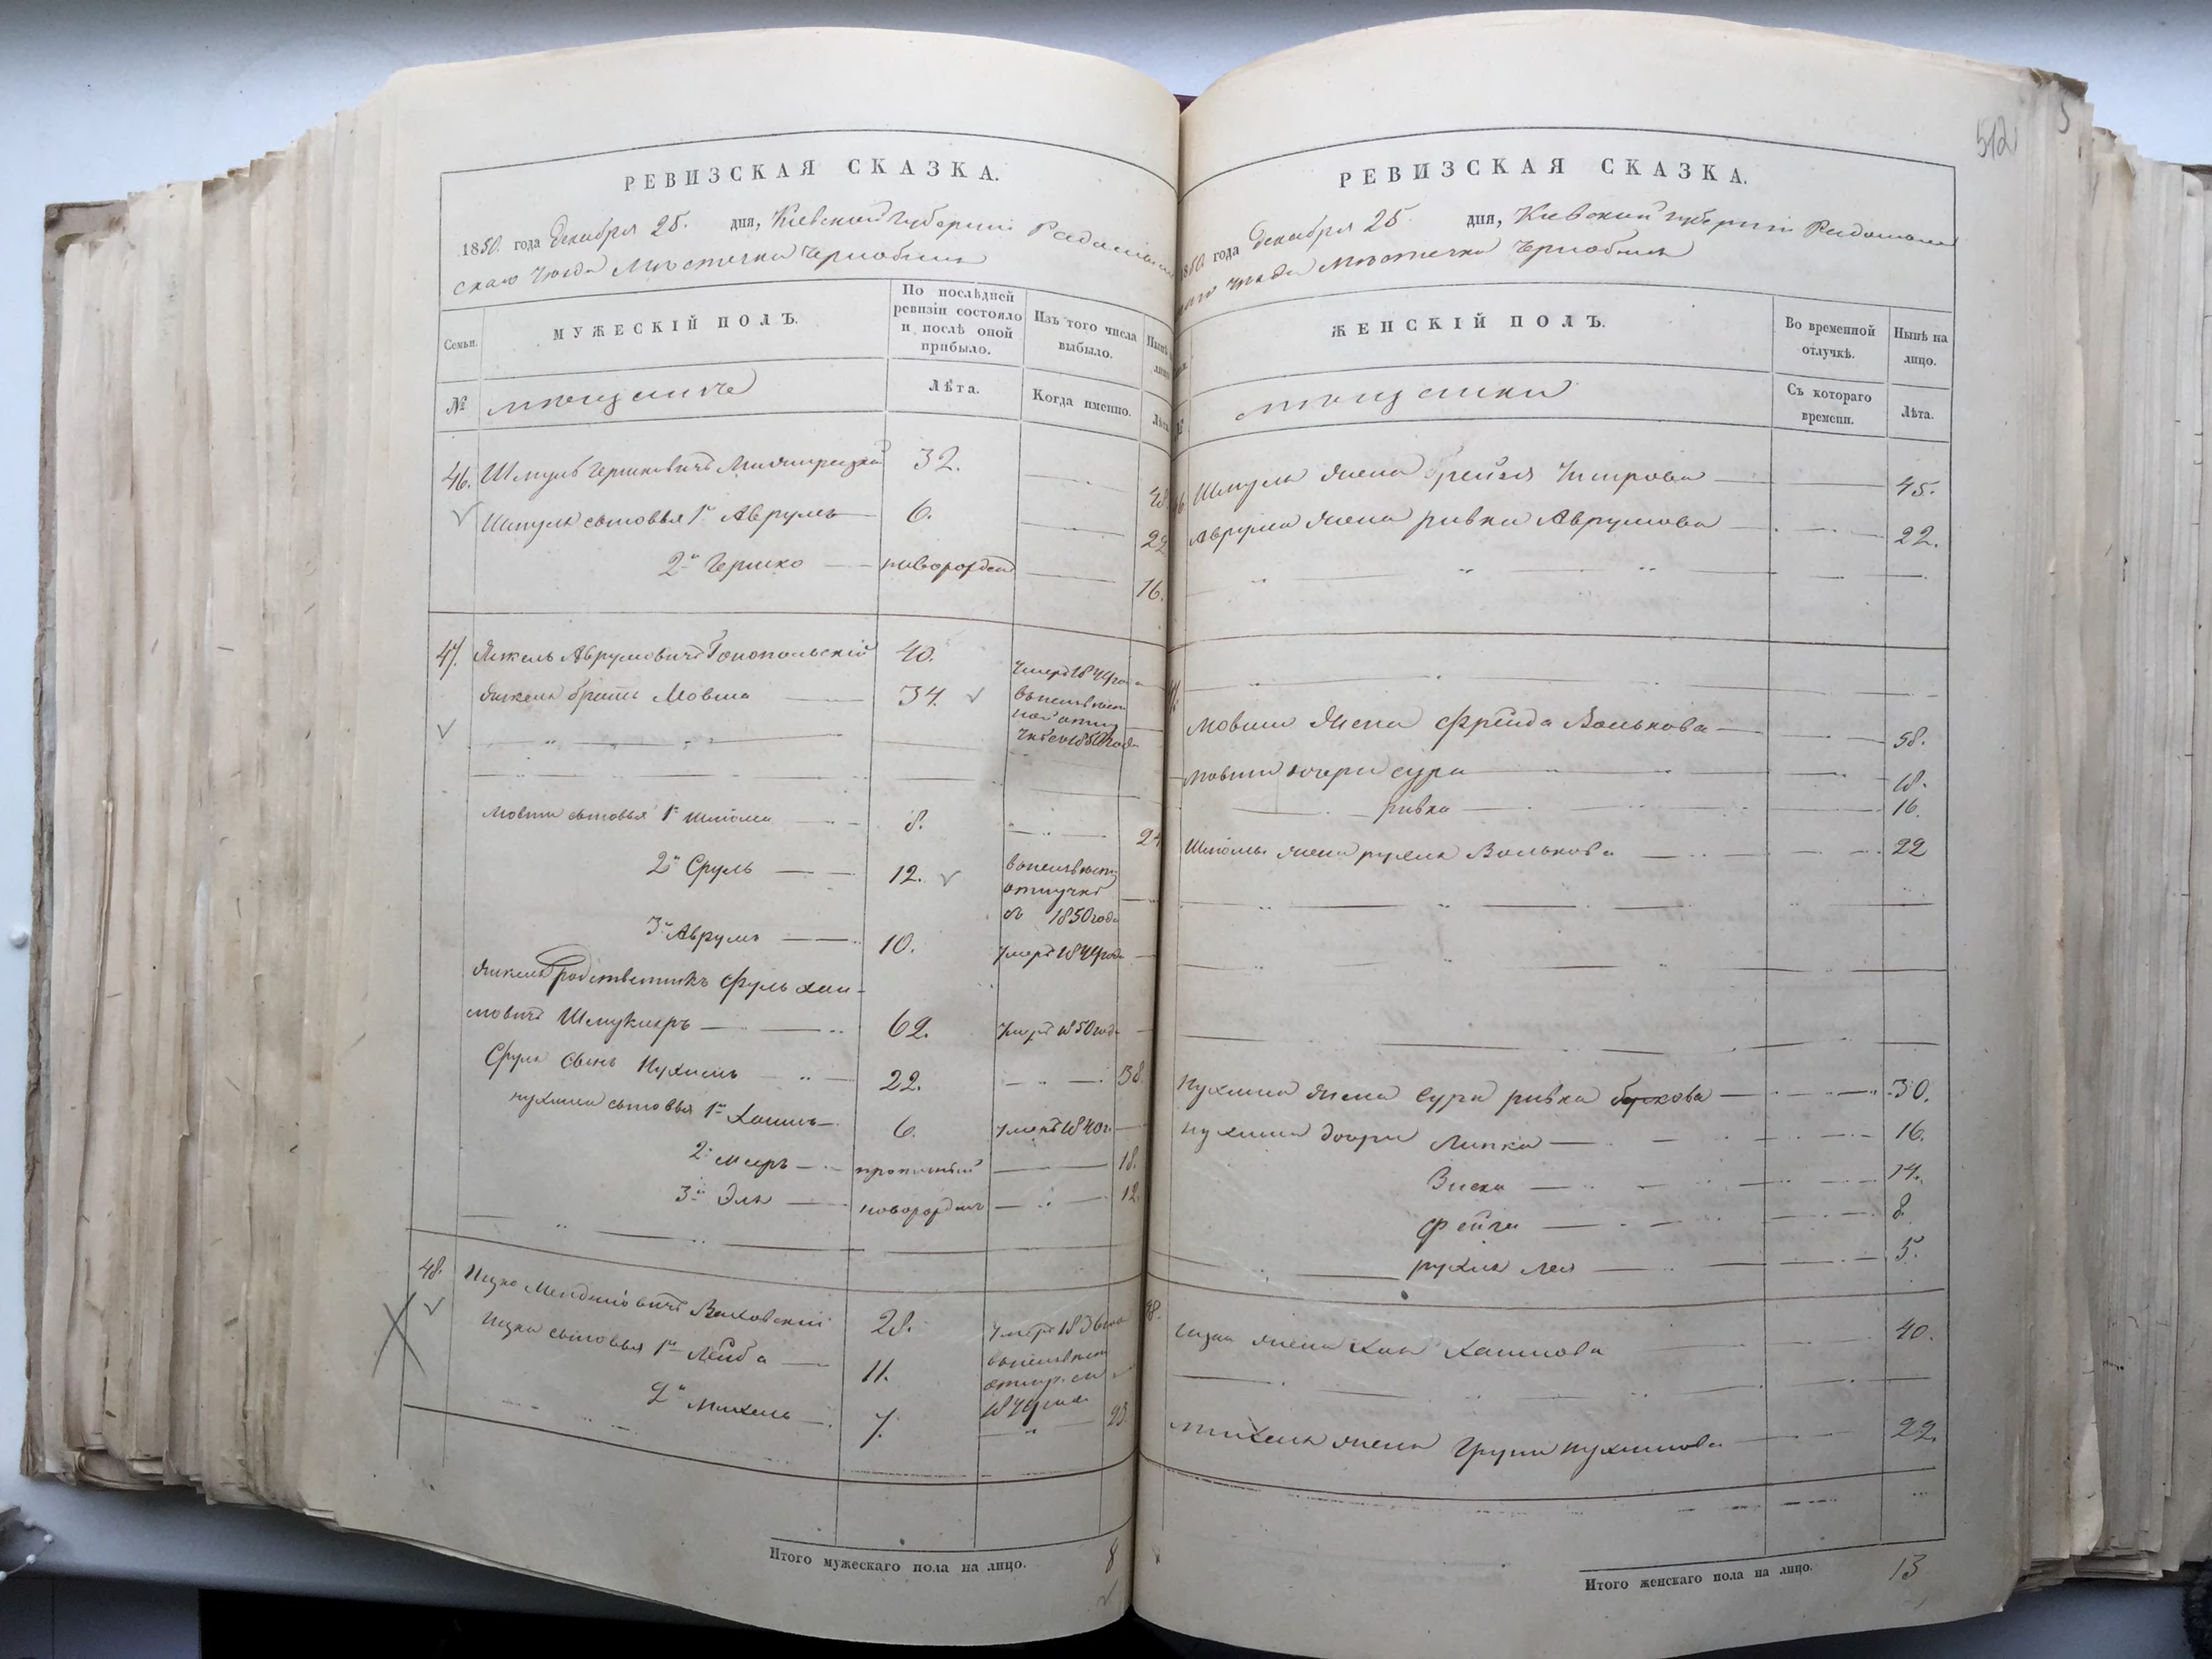 РЕВИЗСКАЯ СКАЗКА.
1850. года Декабря 25. дня, Кіевской Губерніи Радомысль
скаго Уезда Мѣстечка Чернобыля
Семьи.
МУЖЕСКІЙ ПОЛЪ.
По послѣдней ревизіи состояло и послѣ оной прибыло.
Изъ того числа выбыло.
№
мещане
Лѣта.
Когда именно.
46. Шмуль Гершковичъ 32.
Шмуля сыновья 1й Аврумъ 6. 22
2й Гершко новорожден 16.
47. Янкель Аврумовичъ 40. Умеръ 1849 года
Янкеля братъ Мовша 34. в неизвѣстной отлучке с 1850 года
Мовши сыновья 1й Шлiома 8. 24
2й Сруль 12. в неизвѣстн отлучкѣ съ 1850 года
3й Аврумъ 10. Умеръ 1849 года
Янкеля родственникъ Сруль Хаи-
мовичъ Шмуклеръ 62. Умеръ 1850 года
Сруля сынъ Нухимъ 22. 38
Нухима сыновья 1й Хаимъ 6. Умеръ 1840 г.
2й Мееръ прописный 18.
3й Эля новорожден 12
48. Ицко Менделіовичъ 28. Умеръ 1836 года
Ицка сыновья 1й Лейба 11. в неизвѣстн отлуч. съ 1849 года
2й Михель 7. 23.
Итого мужескаго пола на лицо. 8
512
РЕВИЗСКАЯ СКАЗКА.
1850. года Декабря 25 дня, Кіевской Губерніи Радомысль
скаго Уезда Мѣстечка Чернобыля
ЖЕНСКІЙ ПОЛЪ.
Во временной отлучкѣ.
Нынѣ на лицо.
мещанки
Съ котораго времени.
Лѣта.
Шмуля жена 45.
Аврума жена Ривка Аврумова 22.
Мовши жена Фрейда Волькова 58.
Мовши дочери Сура 18.
Ривка 16.
Шлiомы жена Рухля Волькова 22
Нухима жена Сура Ривка Беркова 30.
Нухима дочери Липка 16.
14.
Фейга 8.
Рухля Лея 5.
48. Ицка жена Хая Хаимова 40.
Михеля жена Груня Нухимова 22.
Итого женскаго пола на лицо. 13